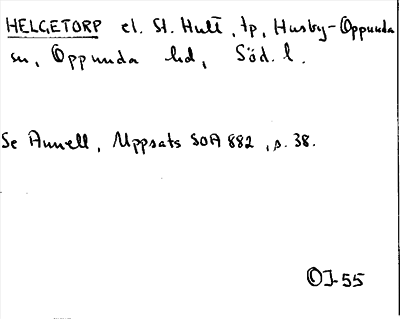 HELGETORP el. St. Hult, tp, Husby-Oppunda
sn, Oppunda hd, Söd. l.
Se Annell, Uppsats SOA 882, s. 38.
OJ-55